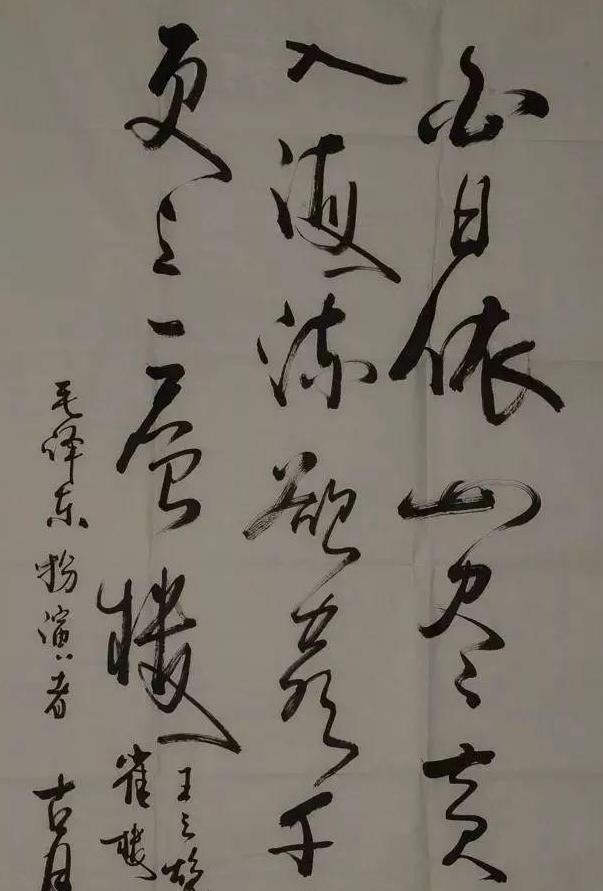 白日依山尽黄
入海流欲穷千
更上一层楼
王之
雀楼
毛泽东扮演者 古月